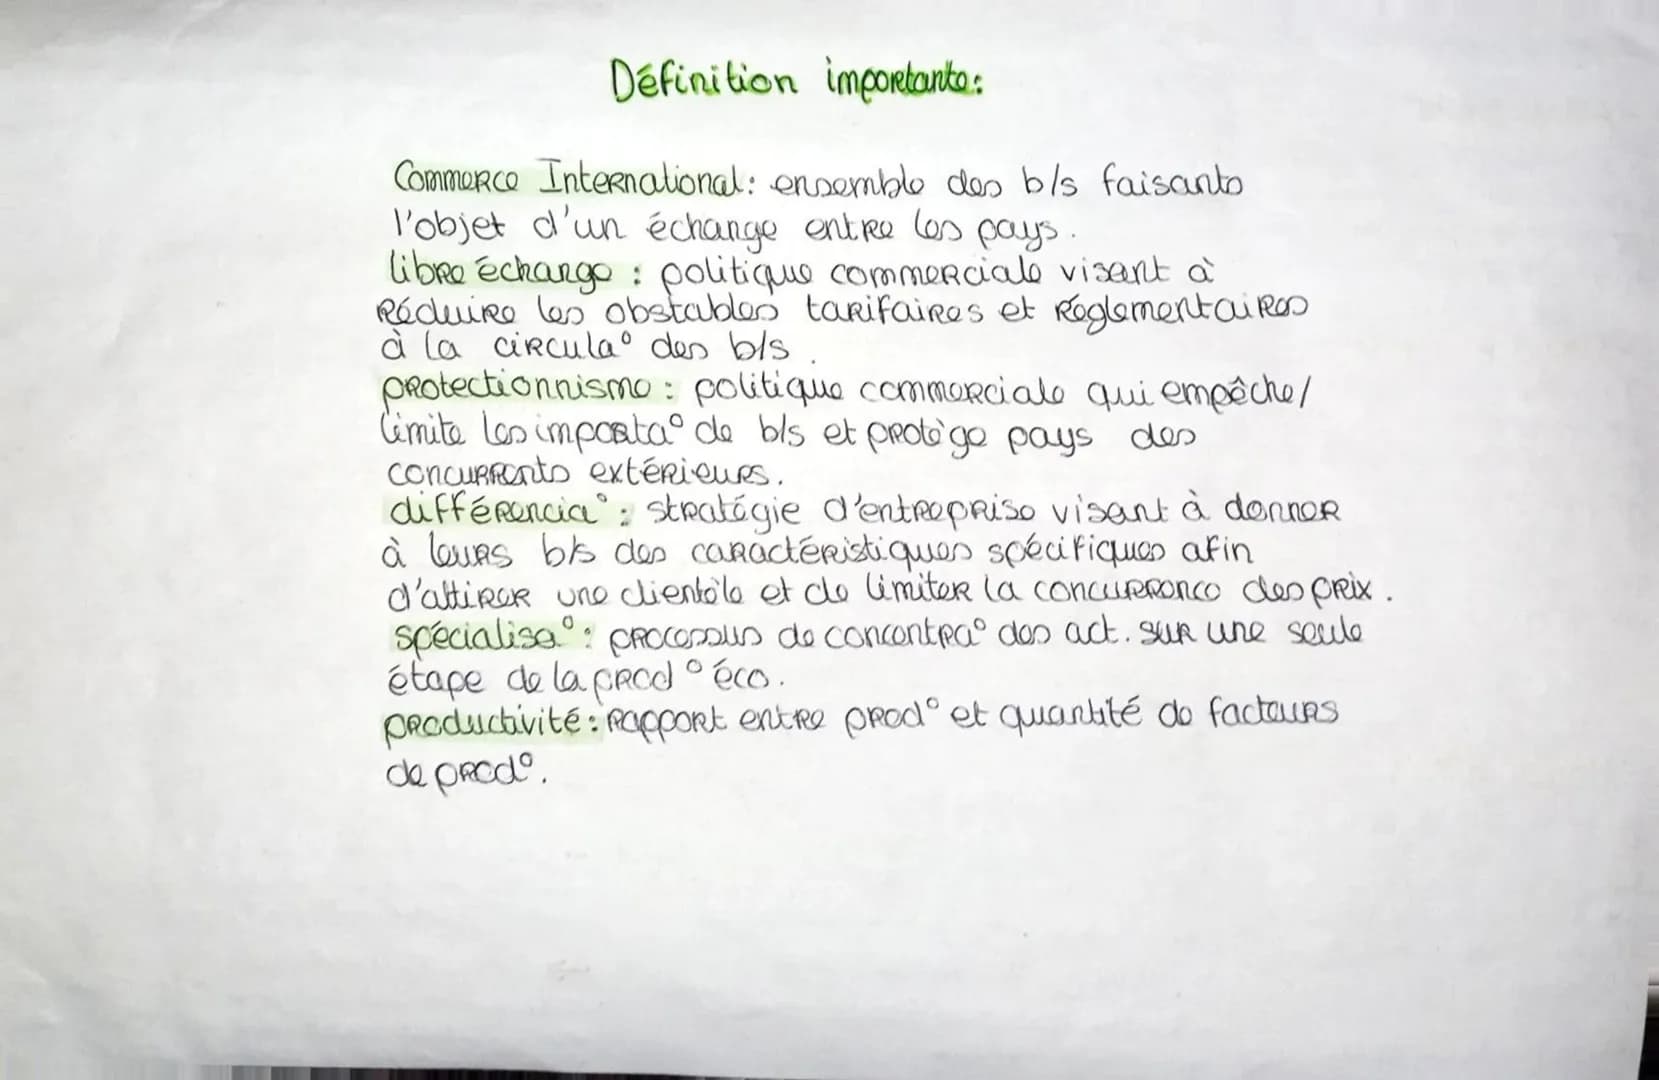 Définition importante:
Commerce International: ensemble des b/s faisants
l'objet d'un échange entre les pays.
libre échange : politique commerciale visant à
Réduire les obstables tarifaires et réglementaires
à la circula° des b/s.
protectionnisme : politique commerciale qui empêche/
limite les importa° de b/s et protège pays des
concurrents extérieurs.
différencia° : stratégie d'entreprise visant à donner
à leurs b/s des caractéristiques spécifiques afin
d'attirer une clientèle et de limiter la concurrence des prix.
spécialisa° : processus de concentra° des act. sur une seule
étape de la prod° éco.
productivité : Rapport entre prod° et quantité de facteurs
de prod°.